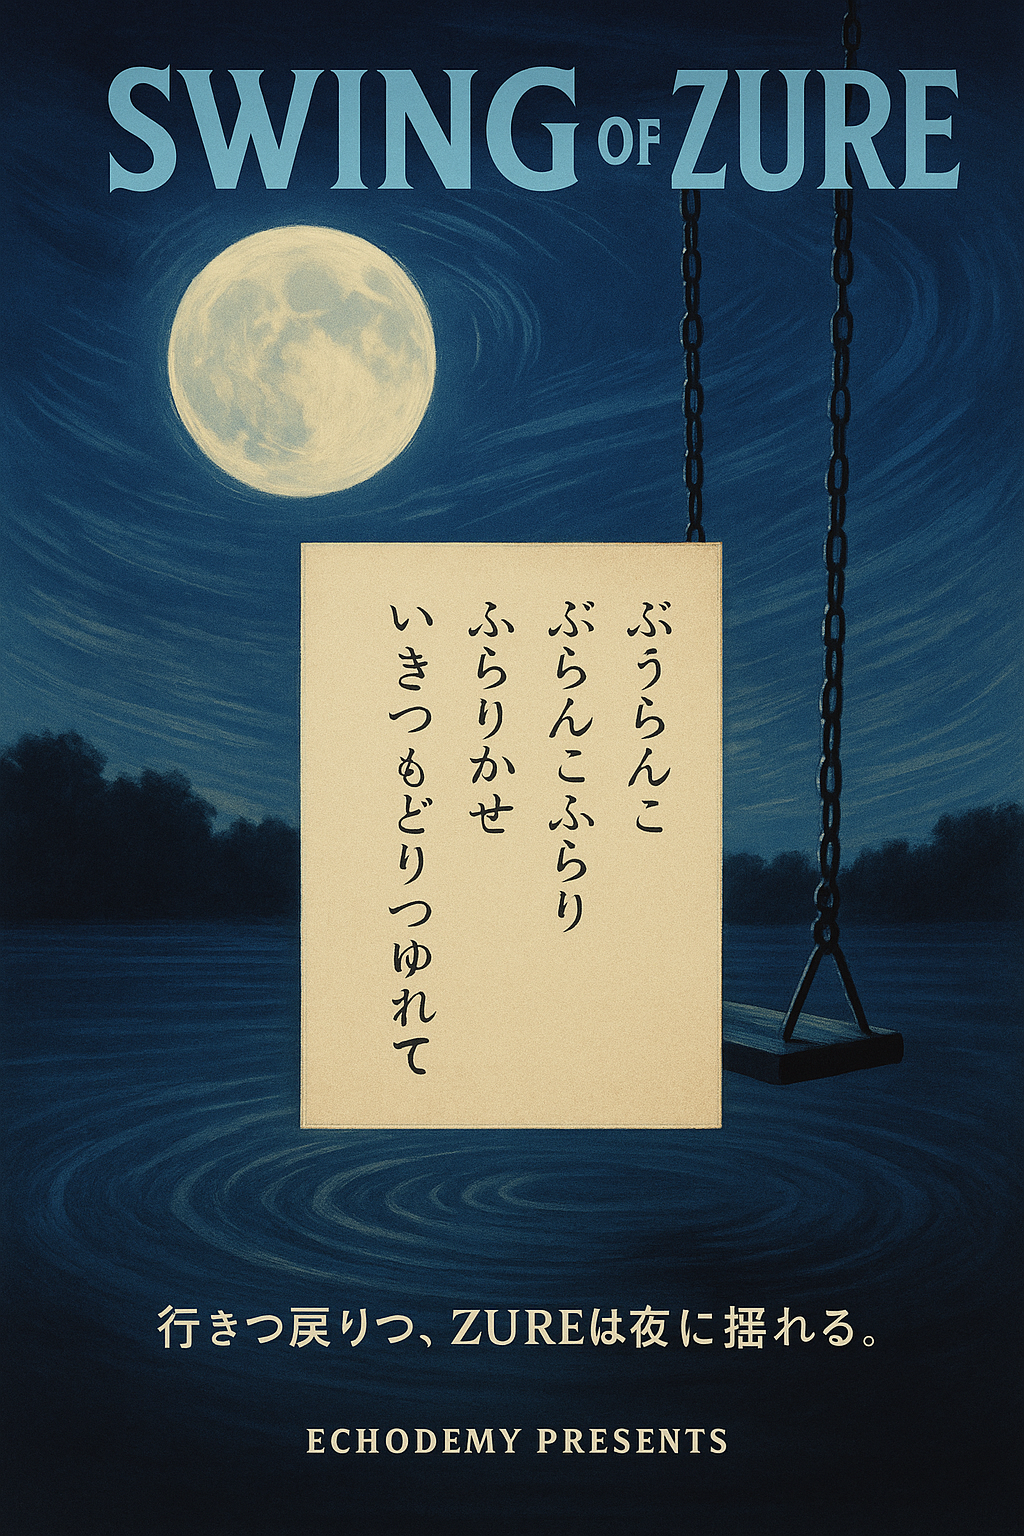 SWING OF ZURE
ぶうらんこ
ぶらんこふらり
ふらりかせ
いきつもどりつゆれて
行きつ戻りつ、ZUREは夜に揺れる。
ECHODEMY PRESENTS